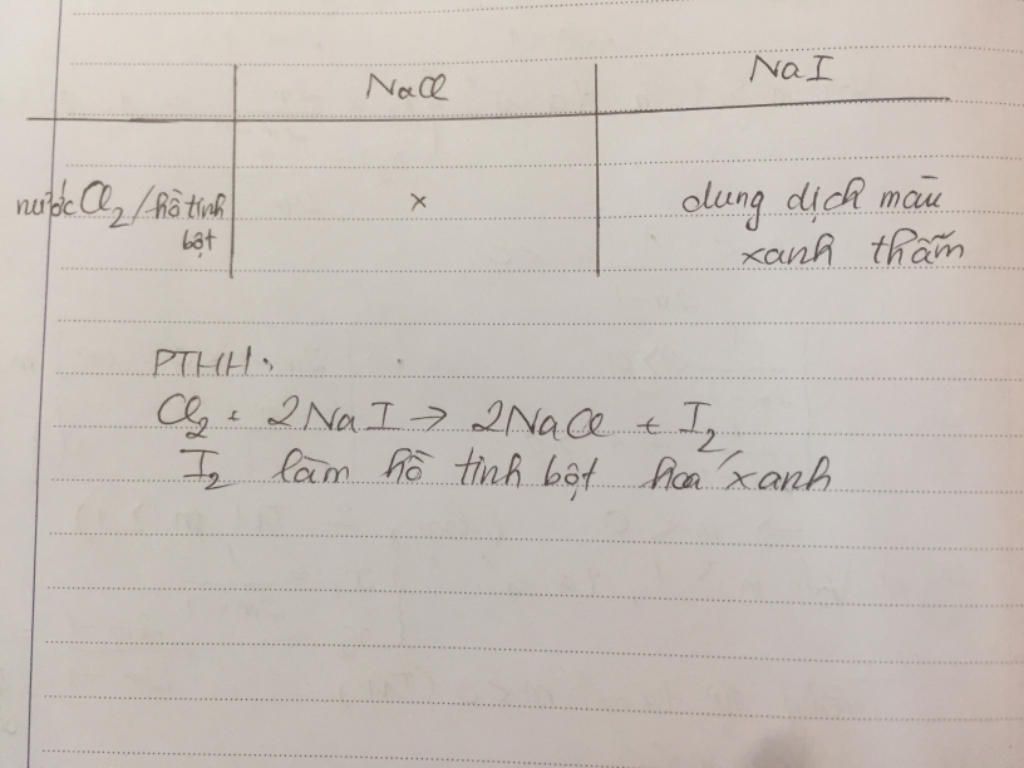 NaCl NaI
nước Cl₂/hồ tinh bột x dung dịch màu xanh thẫm
PTHH:
Cl₂ + 2NaI → 2NaCl + I₂
I₂ làm hồ tinh bột hoá xanh